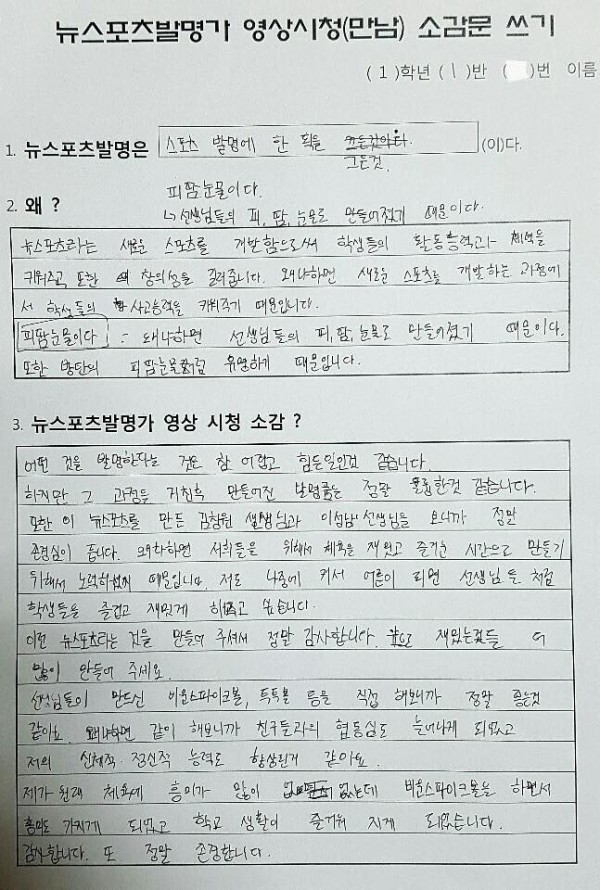 뉴스포츠발명가 영상시청(만남) 소감문 쓰기
( 1 )학년 ( 1 )반 ( )번 이름
1. 뉴스포츠발명은 스포츠 발명에 한 획을 그은것. (이)다.
피땀눈물이다.
2. 왜 ? ↳선생님들의 피, 땀, 눈물로 만들어졌기 때문이다.
뉴스포츠라는 새로운 스포츠를 개발함으로써 학생들의 활동능력과 체력을
키워주고 또한 창의성을 길러줍니다. 왜냐하면 새로운 스포츠를 개발하는 과정에
서 학생들의 사고능력을 키워주기 때문입니다.
피땀눈물이다 : 왜냐하면 선생님들의 피,땀,눈물로 만들어졌기 때문이다.
또한 방탄의 피땀눈물처럼 유명하기 때문입니다.
3. 뉴스포츠발명가 영상 시청 소감 ?
어떤 것을 발명한다는 것은 참 어렵고 힘든일인것 같습니다.
하지만 그 과정을 거친후 만들어진 발명품는 정말 훌륭한것 같습니다.
또한 이 뉴스포츠를 만든 김창원 선생님과 이섭남 선생님을 보니까 정말
존경심이 듭니다. 왜냐하면 저희들을 위해서 체육을 재밌고 즐거운 시간으로 만들기
위해서 노력하셨기 때문입니다. 저도 나중에 커서 어른이 되면 선생님들 처럼
학생들을 즐겁고 재밌게 하고 싶습니다.
이런 뉴스포츠라는 것을 만들어 주셔서 정말 감사합니다. 앞으로 재밌는것들 더
많이 만들어 주세요.
선생님들이 만드신 비욘스파이크볼, 톡톡볼 등을 직접 해보니까 정말 좋은것
같아요. 왜냐하면 같이 해보니까 친구들과의 협동심도 늘어나게 되었고
저의 신체적 정신적 능력도 향상된거 같아요.
제가 원래 체육에 흥미가 많이 없었는데 비욘스파이크볼을 하면서
흥미도 가지게 되었고 학교 생활이 즐거워 지게 되었습니다.
감사합니다. 또 정말 존경합니다.